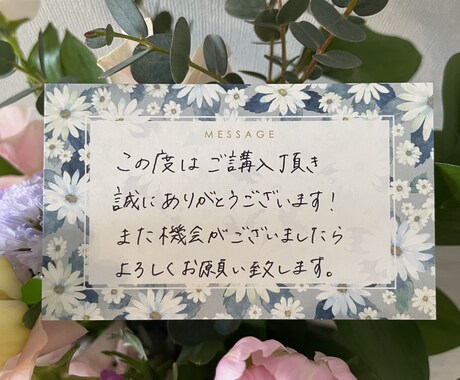 MESSAGE
この度はご講入頂き
誠にありがとうございます!
また機会がございましたら
よろしくお願い致します。